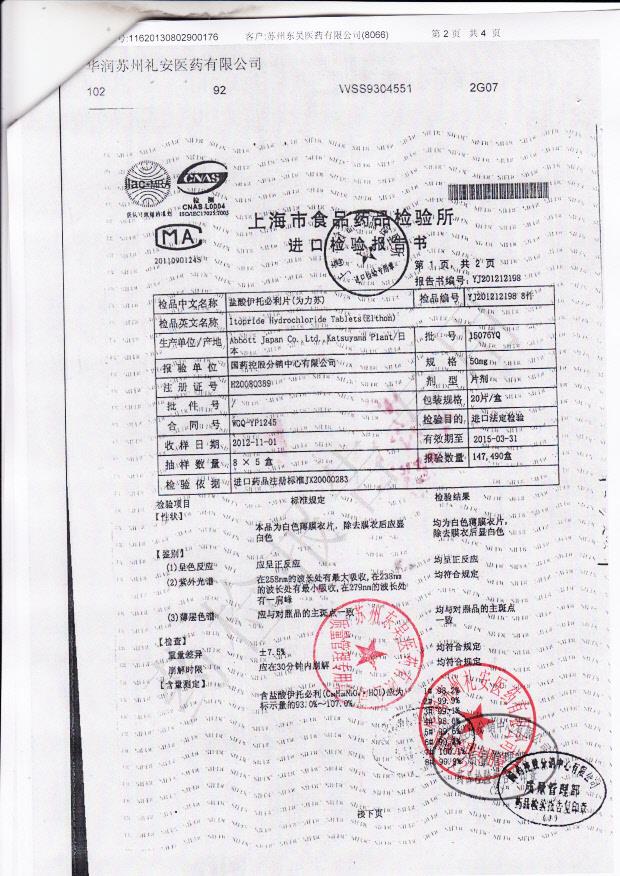 号:11620130802900176 客户:苏州东昊医药有限公司(8066) 第 2 页 共 4 页
华润苏州礼安医药有限公司
102 92 WSS9304551 2G07
ilac-MRA CNAS
检测
CNAS L0004
ISO/IEC17025:2005
MA
2011090124S
上海市食品药品检验所
进口检验报告书
第 1 页, 共 2 页
报告书编号: YJ201212198
检品中文名称 盐酸伊托必利片(为力苏) 检品编号 YJ201212198 8件
检品英文名称 Itopride Hydrochloride Tablets(Elthon)
生产单位/产地 Abbott Japan Co.,Ltd.,Katsuyama Plant/日本 批 号 15076YQ
报 验 单 位 国药控股分销中心有限公司 规 格 50mg
注 册 证 号 H20080389 剂 型 片剂
批 件 号 / 包装规格 20片/盒
合 同 号 WGQ-YP1245 检验目的 进口法定检验
收 样 日 期 2012-11-01 有效期至 2015-03-31
抽 样 数 量 8 × 5 盒 报验数量 147,490盒
检 验 依 据 进口药品注册标准JX20000283
检验项目 标准规定 检验结果
【性状】
本品为白色薄膜衣片, 除去膜衣后应显 均为白色薄膜衣片,
白色 除去膜衣后显白色
【鉴别】
(1)呈色反应 应呈正反应 均呈正反应
(2)紫外光谱 在258nm的波长处有最大吸收, 在238nm 均符合规定
的波长处有最小吸收, 在279nm的波长处
有一肩峰
(3)薄层色谱 应与对照品的主斑点一致 均与对照品的主斑点
一致
【检查】
重量差异 ±7.5% 均符合规定
崩解时限 应在30分钟内崩解 均符合规定
【含量测定】
含盐酸伊托必利(C₂₀H₂₆N₂O₄·HCl)应为 1# 98.2%
标示量的93.0%~107.0% 2# 99.9%
3# 99.1%
4# 98.0%
100.1%
8# 99.9%
苏州东昊医药
质量管理专用章
礼安医药有限
国药控股分销中心有限公司
质量管理部
药品检验报告复印章
接下页